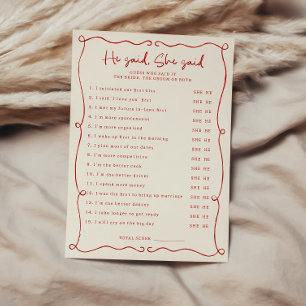 He said, She said
GUESS WHO SAID IT
THE BRIDE, THE GROOM OR BOTH
1. I initiated our first kiss SHE HE
2. I said 'I love you' first SHE HE
3. I met my future in-laws first SHE HE
4. I'm more spontaneous SHE HE
5. I'm more organised SHE HE
6. I wake up first in the morning SHE HE
7. I plan most of our dates SHE HE
8. I'm more competitive SHE HE
9. I'm the better cook SHE HE
10. I'm the better driver SHE HE
11. I spend more money SHE HE
12. I was the first to bring up marriage SHE HE
13. I'm the better dancer SHE HE
14. I take longer to get ready SHE HE
15. I'll cry on the big day SHE HE
TOTAL SCORE